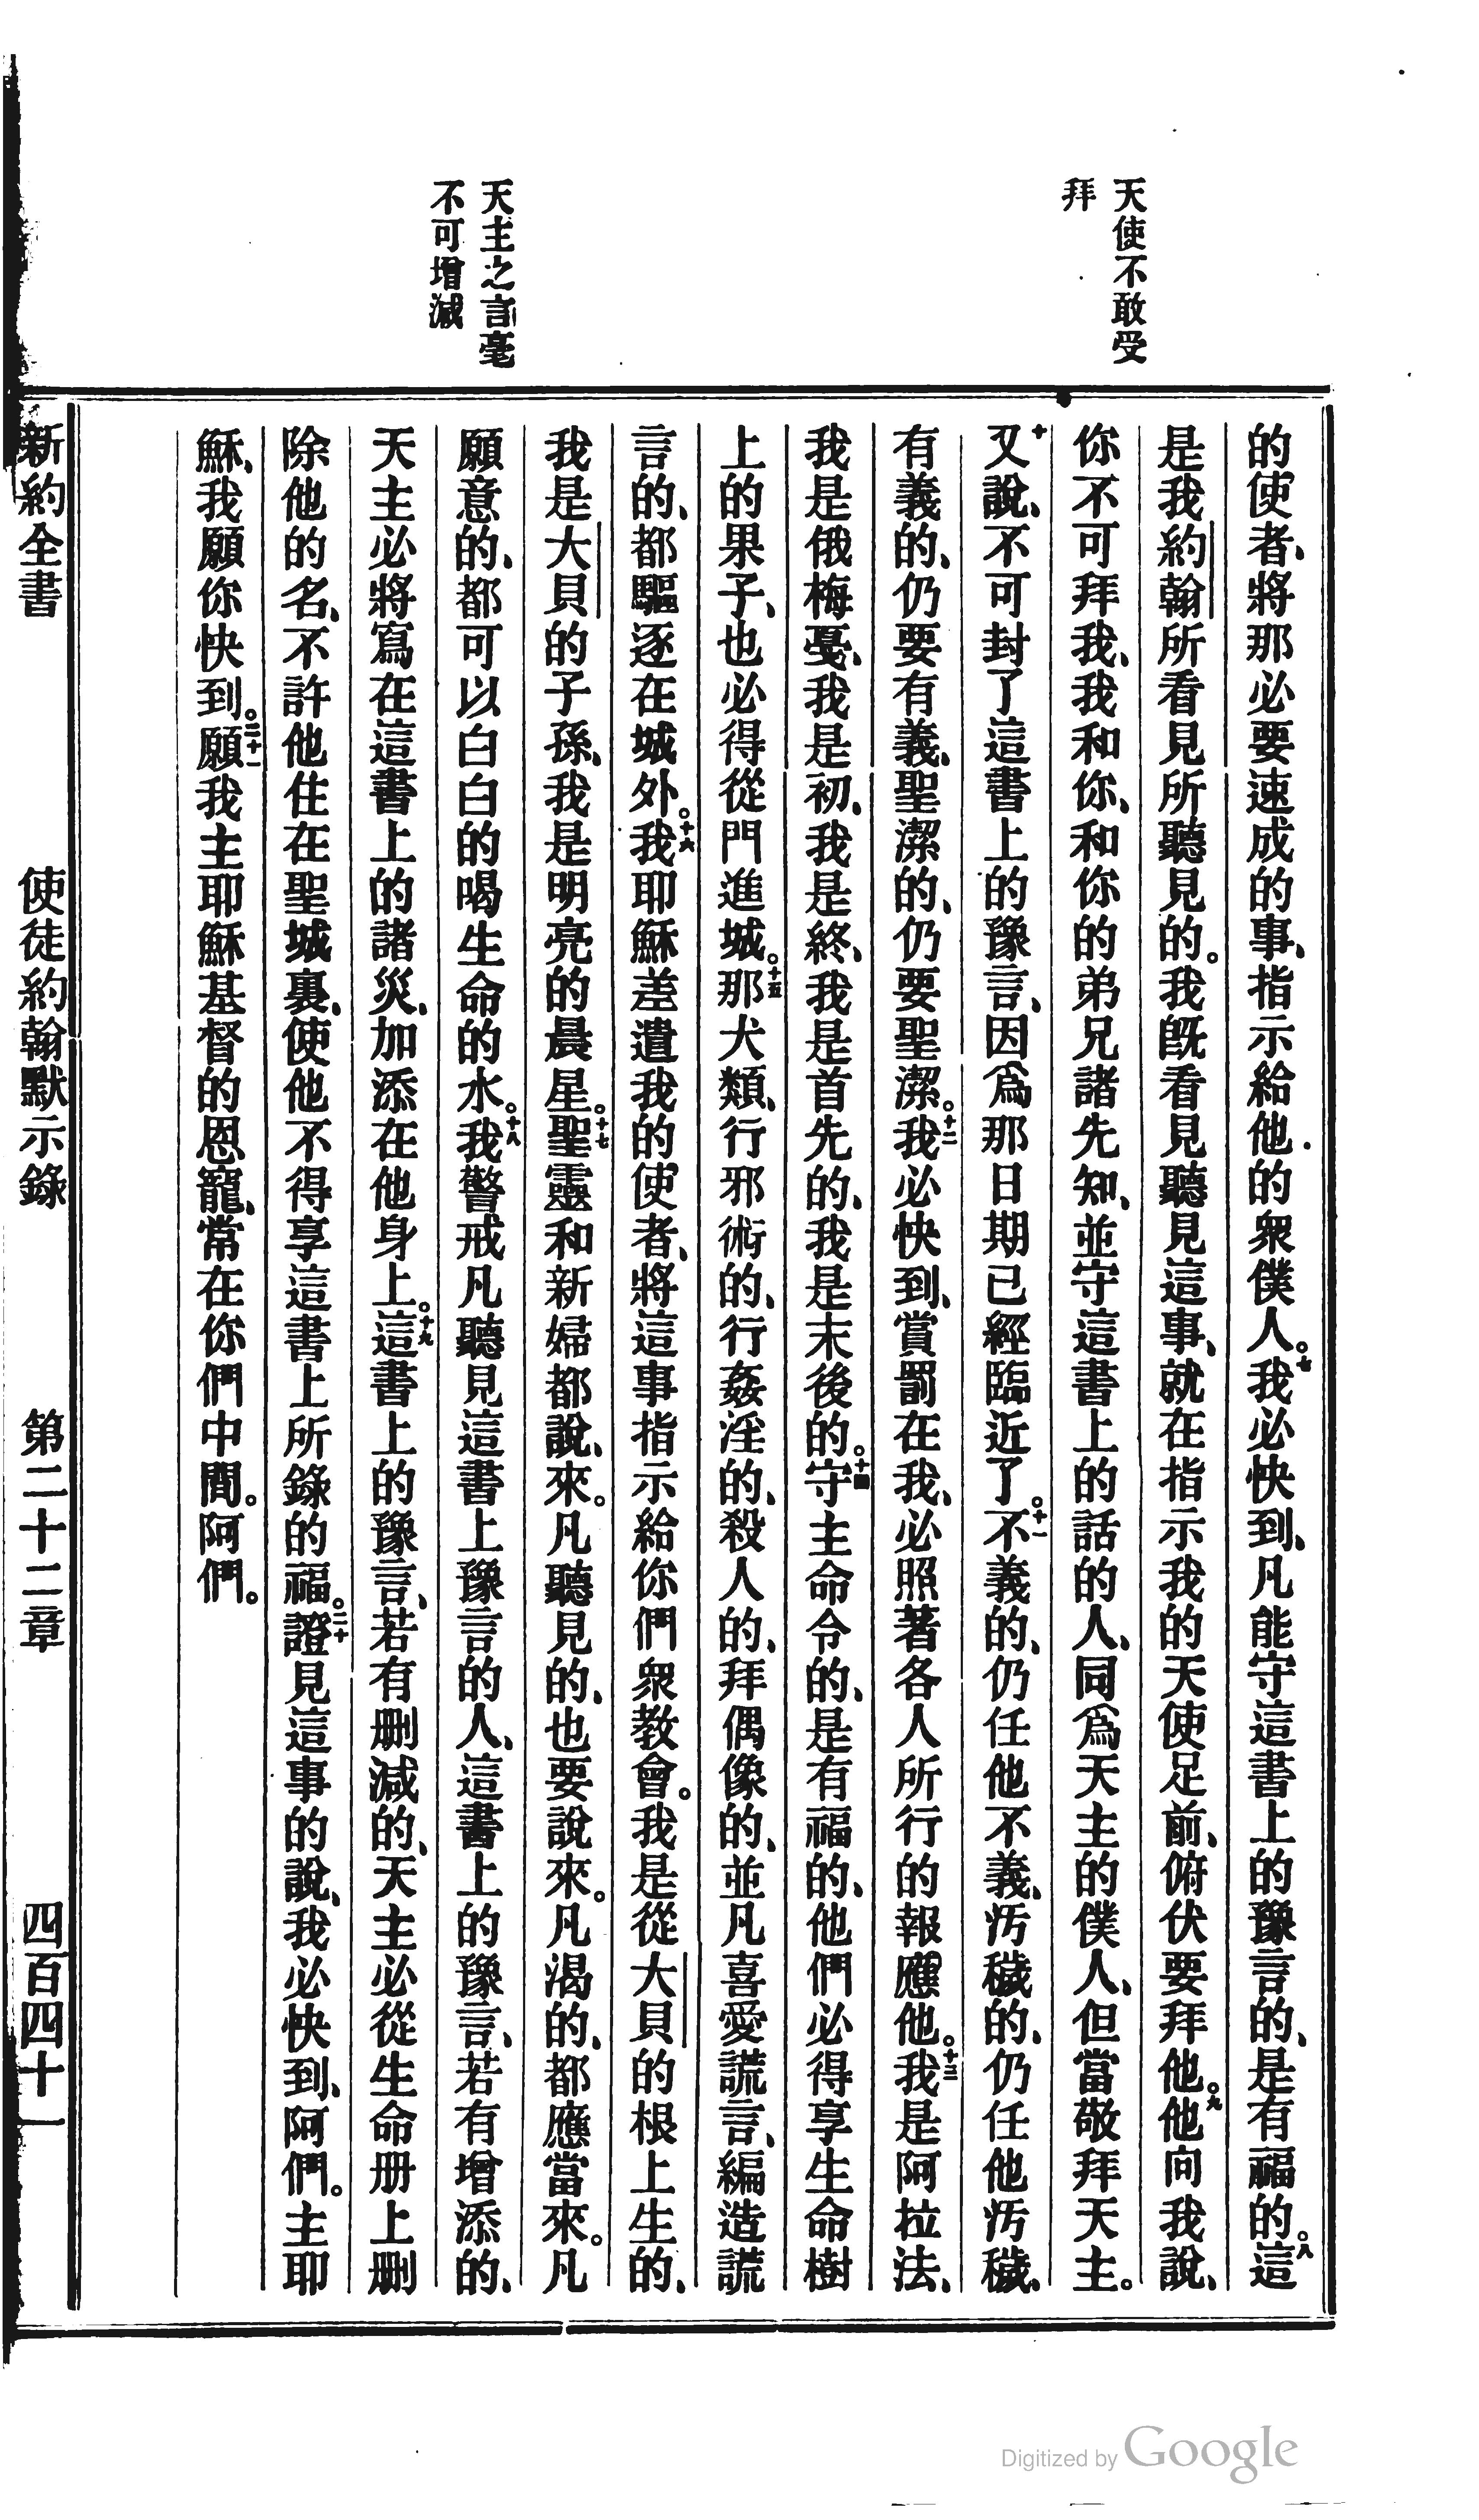 天使不敢受
拜
天主之言毫
不可增減
的使者、將那必要速成的事、指示給他的衆僕人。七我必快到、凡能守這書上的豫言的、是有福的。八這
是我約翰所看見所聽見的。我旣看見聽見這事、就在指示我的天使足前、俯伏要拜他。九他向我說、
你不可拜我、我和你、和你的弟兄諸先知、並守這書上的話的人、同爲天主的僕人、但當敬拜天主。
十又說、不可封了這書上的豫言、因爲那日期已經臨近了。十一不義的、仍任他不義、汚穢的、仍任他汚穢、
有義的、仍要有義、聖潔的、仍要聖潔。十二我必快到、賞罰在我、必照著各人所行的報應他。十三我是阿拉法、
我是俄梅戛、我是初、我是終、我是首先的、我是末後的。十四守主命令的、是有福的、他們必得享生命樹
上的果子、也必得從門進城。十五那犬類、行邪術的、行姦淫的、殺人的、拜偶像的、並凡喜愛謊言、編造謊
言的、都驅逐在城外。十六我耶穌差遣我的使者、將這事指示給你們衆教會。我是從大貝的根上生的、
我是大貝的子孫、我是明亮的晨星。十七聖靈和新婦都說、來。凡聽見的、也要說來。凡渴的、都應當來。凡
願意的、都可以白白的喝生命的水。十八我警戒凡聽見這書上豫言的人、這書上的豫言、若有增添的、
天主必將寫在這書上的諸災、加添在他身上。十九這書上的豫言、若有删減的、天主必從生命册上删
除他的名、不許他住在聖城裏、使他不得享這書上所錄的福。二十證見這事的說、我必快到、阿們。主耶
穌、我願你快到。二十一願我主耶穌基督的恩寵、常在你們中間。阿們。
新約全書 使徒約翰默示錄 第二十二章 四百四十一
Digitized by Google